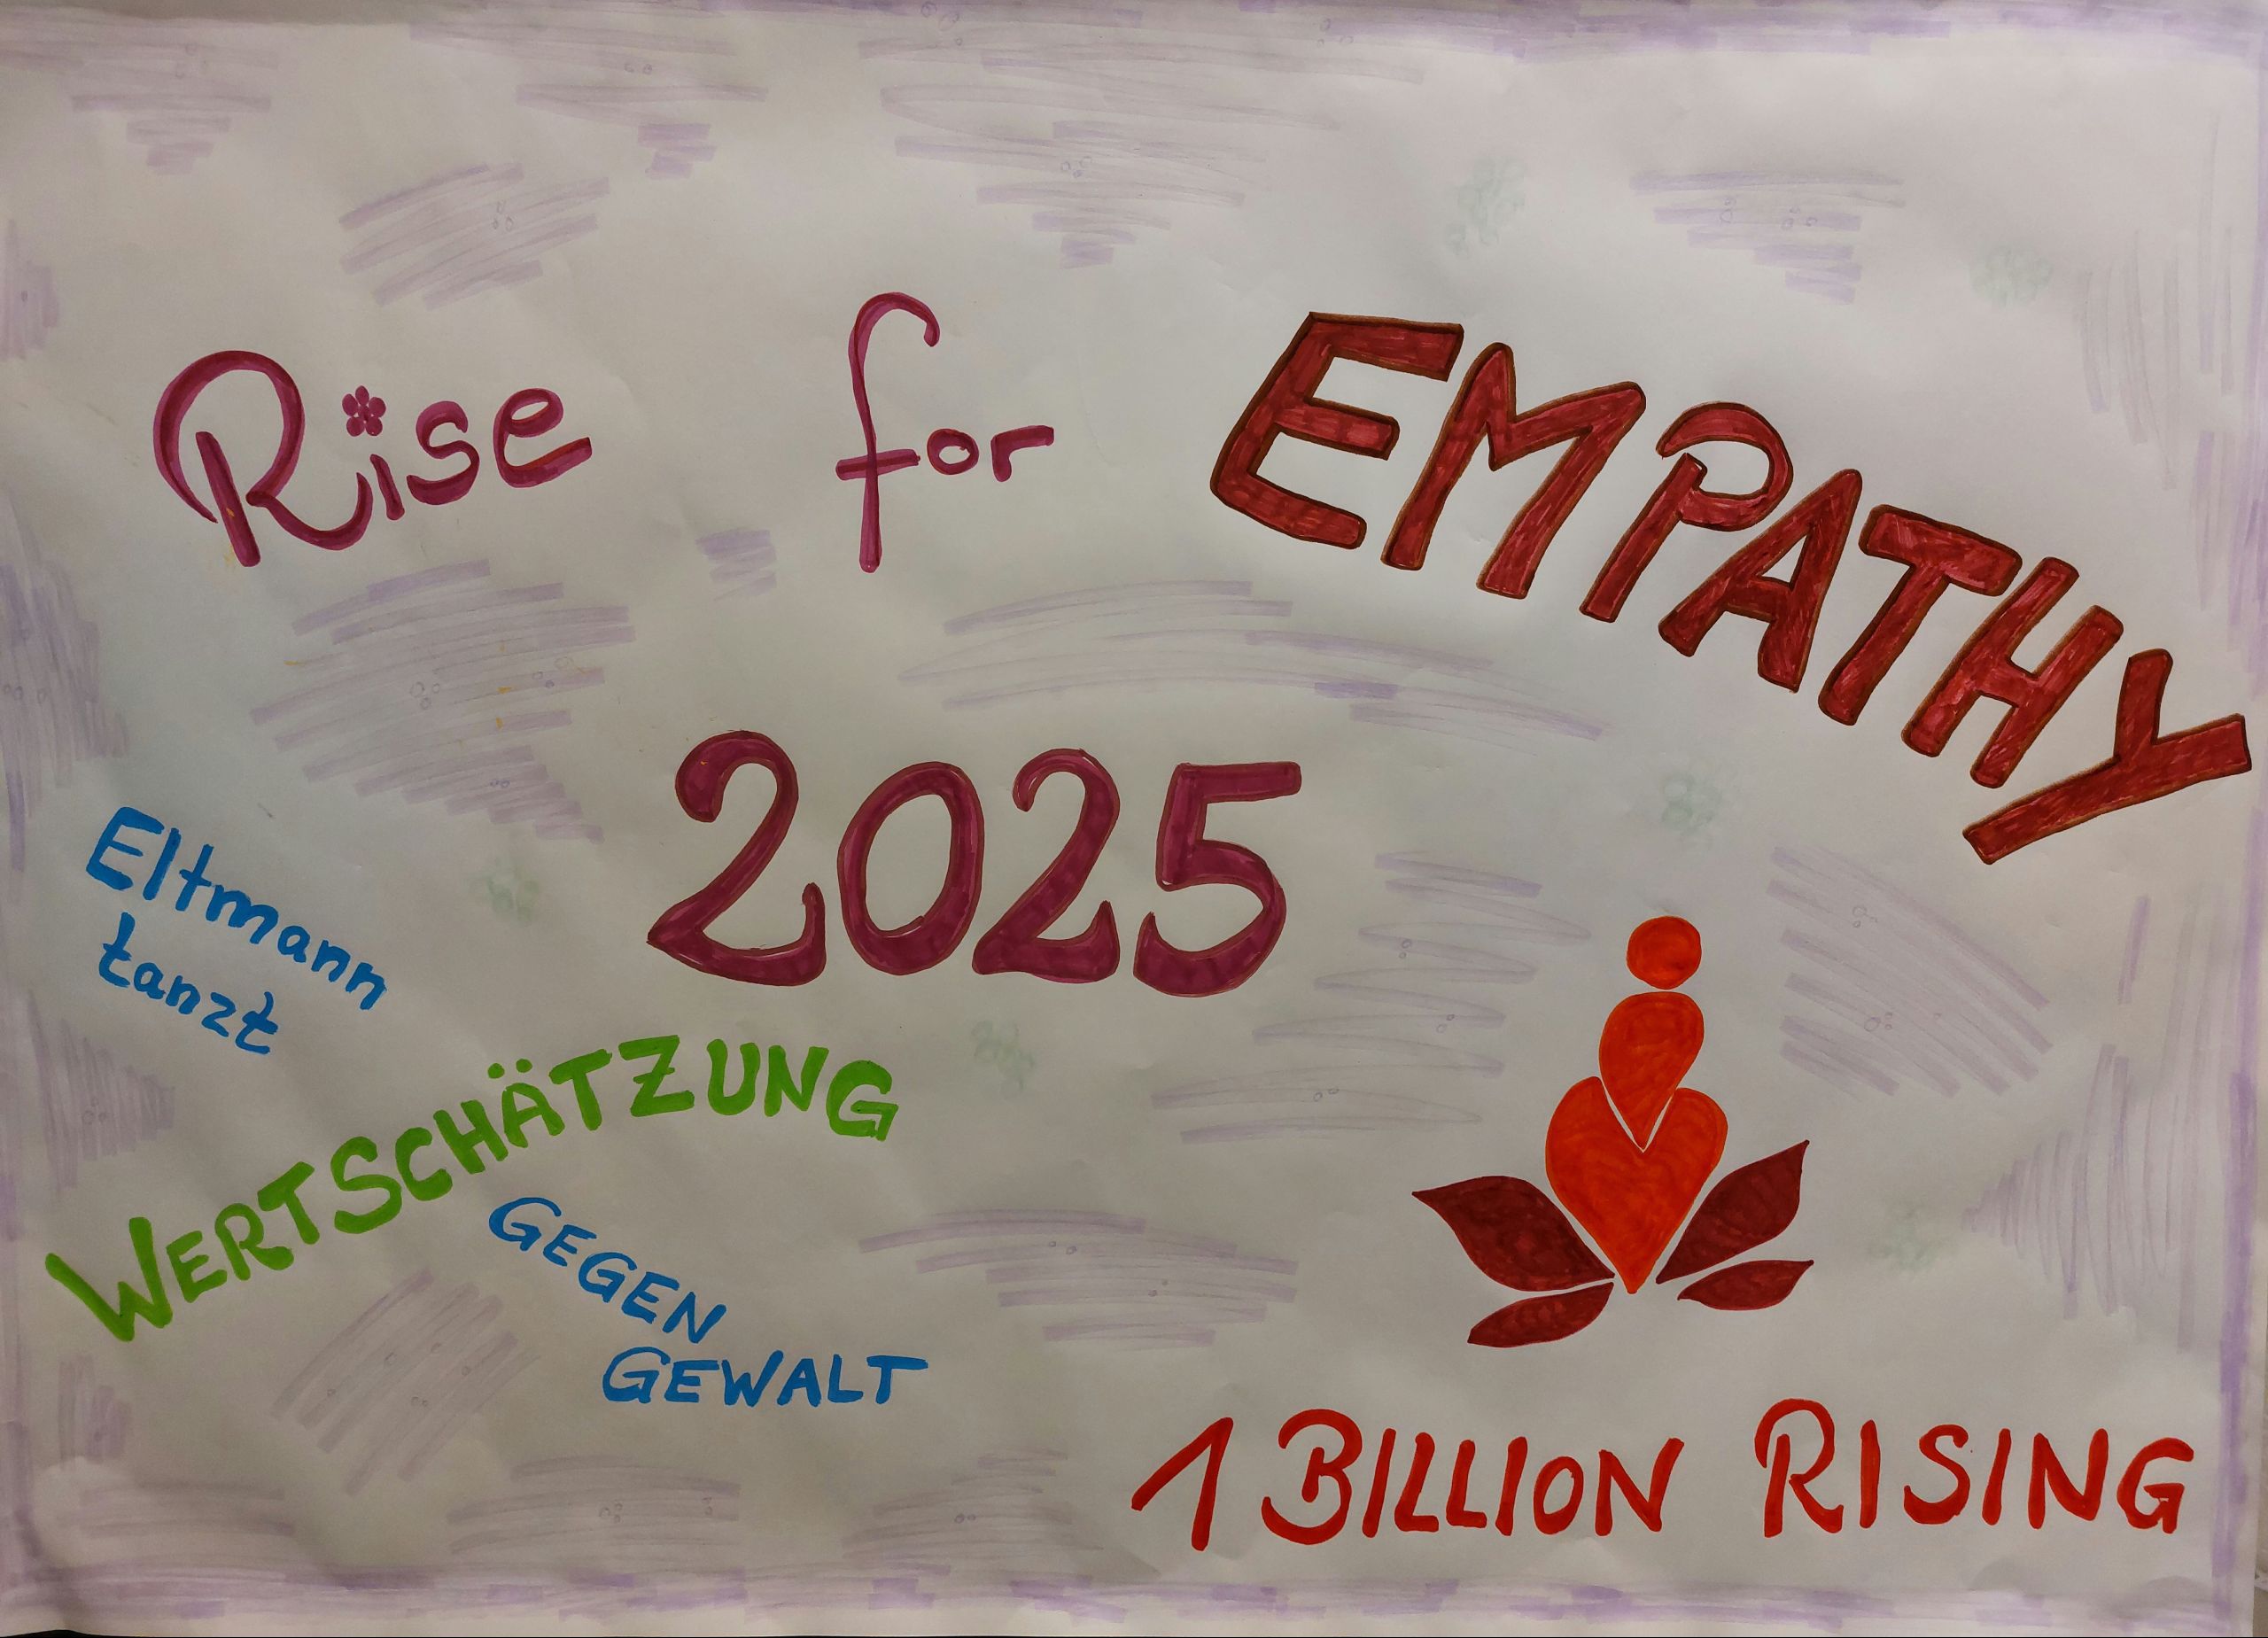 Rise for EMPATHY
2025
Eltmann
tanzt
WERTSCHÄTZUNG
GEGEN
GEWALT
1 BILLION RISING